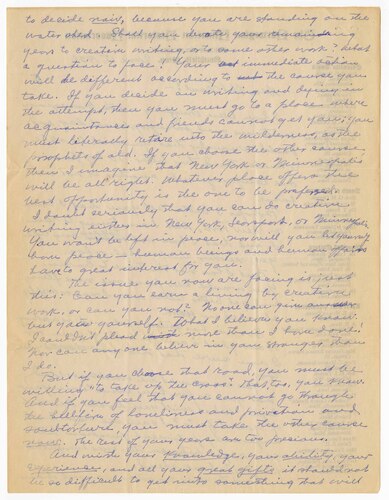 to decide now, because you are standing on the
water shed. Shall you devote your remaining
years to creative writing, or to some other work? What
a question to face! Your immediate action
will be different according to the course you
take. If you decide on writing and defying in
the attempt, then you must go to a place where
acquaintances and friends cannot get you; you
must literally retire into the wilderness, as the
prophets of old. If you choose the other course,
then I imagine that New York or Minneapolis
will be all right. Whatever place offers the
best opportunity is the one to be preferred.
I doubt seriously that you can do creative
writing either in New York, or Minneapolis.
You won't be left in peace, nor will you
have peace — human beings and human affairs
have too great interest for you.
The issue you now are facing is just
this: Can you earn a living by creative
work, or can you not? No one can
but you yourself. What I believe you know.
I could not plead more than I have done.
Nor can anyone believe in you stronger than
I do.
But if you choose that road, you must be
willing "to take up the cross". That, too, you know.
And if you feel that you cannot go through
the of loneliness and privation and
you must take the other course
now. The rest of your years are too precious.
And with your knowledge, your ability, your
experience, and all your great gifts it should not
be so difficult to get into something that will